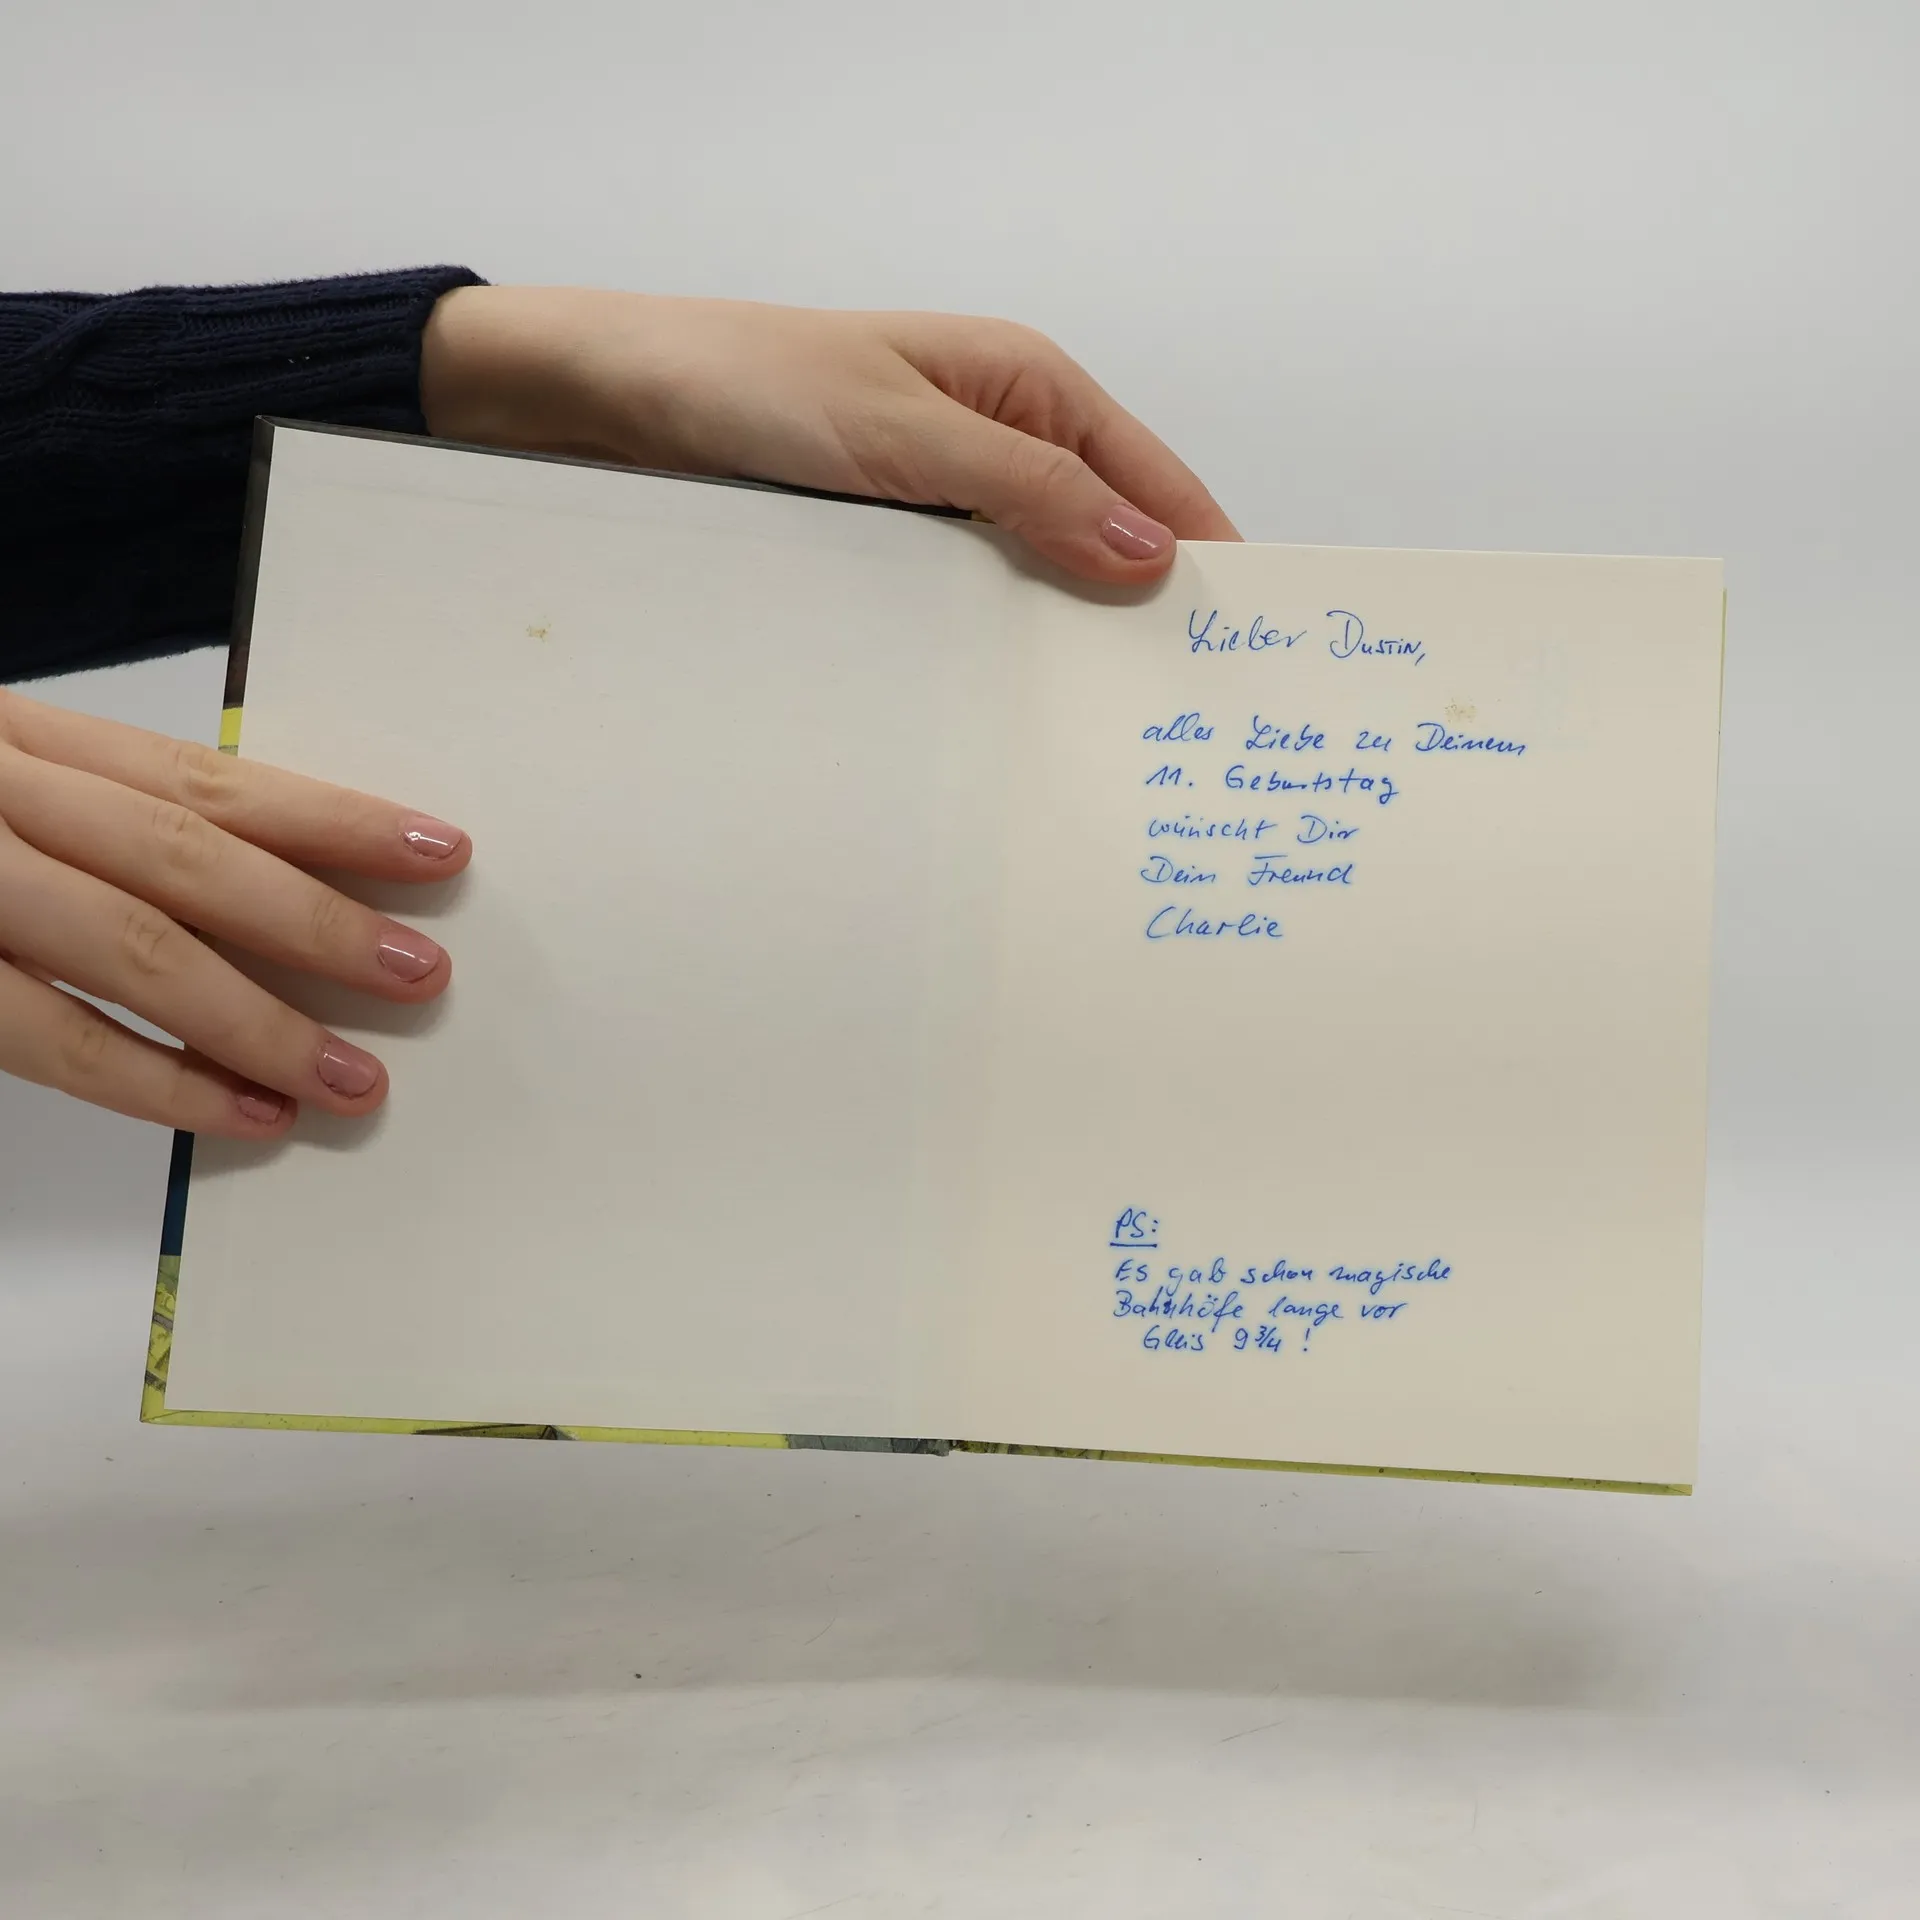 Lieber Dustin,
alles Liebe zu Deinem
11. Geburtstag
wünscht Dir
Dein Freund
Charlie
PS:
Es gab schon magische
Bahnhöfe lange vor
Gleis 9 3/4 !